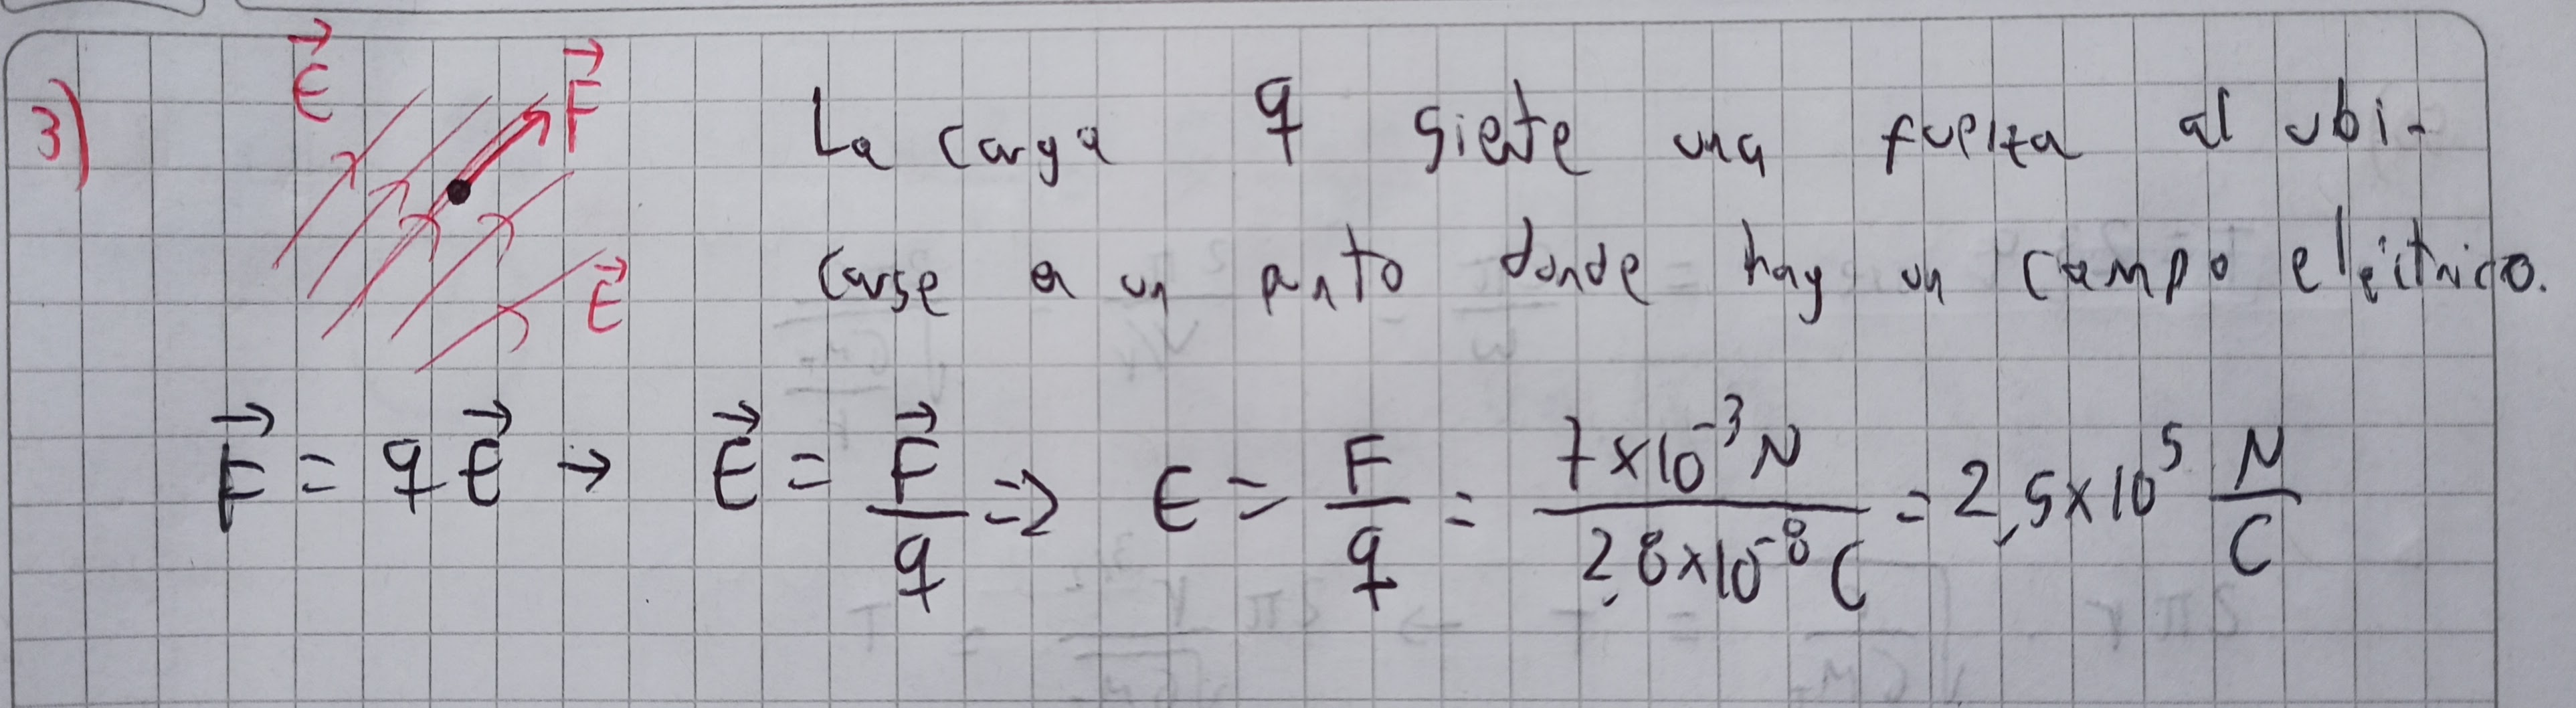 3)
E⃗
F⃗
La carga q siente una fuerza al ubi-
carse a un punto donde hay un campo eléctrico.
E⃗
F⃗ = qE⃗ → E⃗ = F⃗/q ⇒ E = F/q = 7×10⁻³ N / 2,8×10⁻⁸ C = 2,5×10⁵ N/C